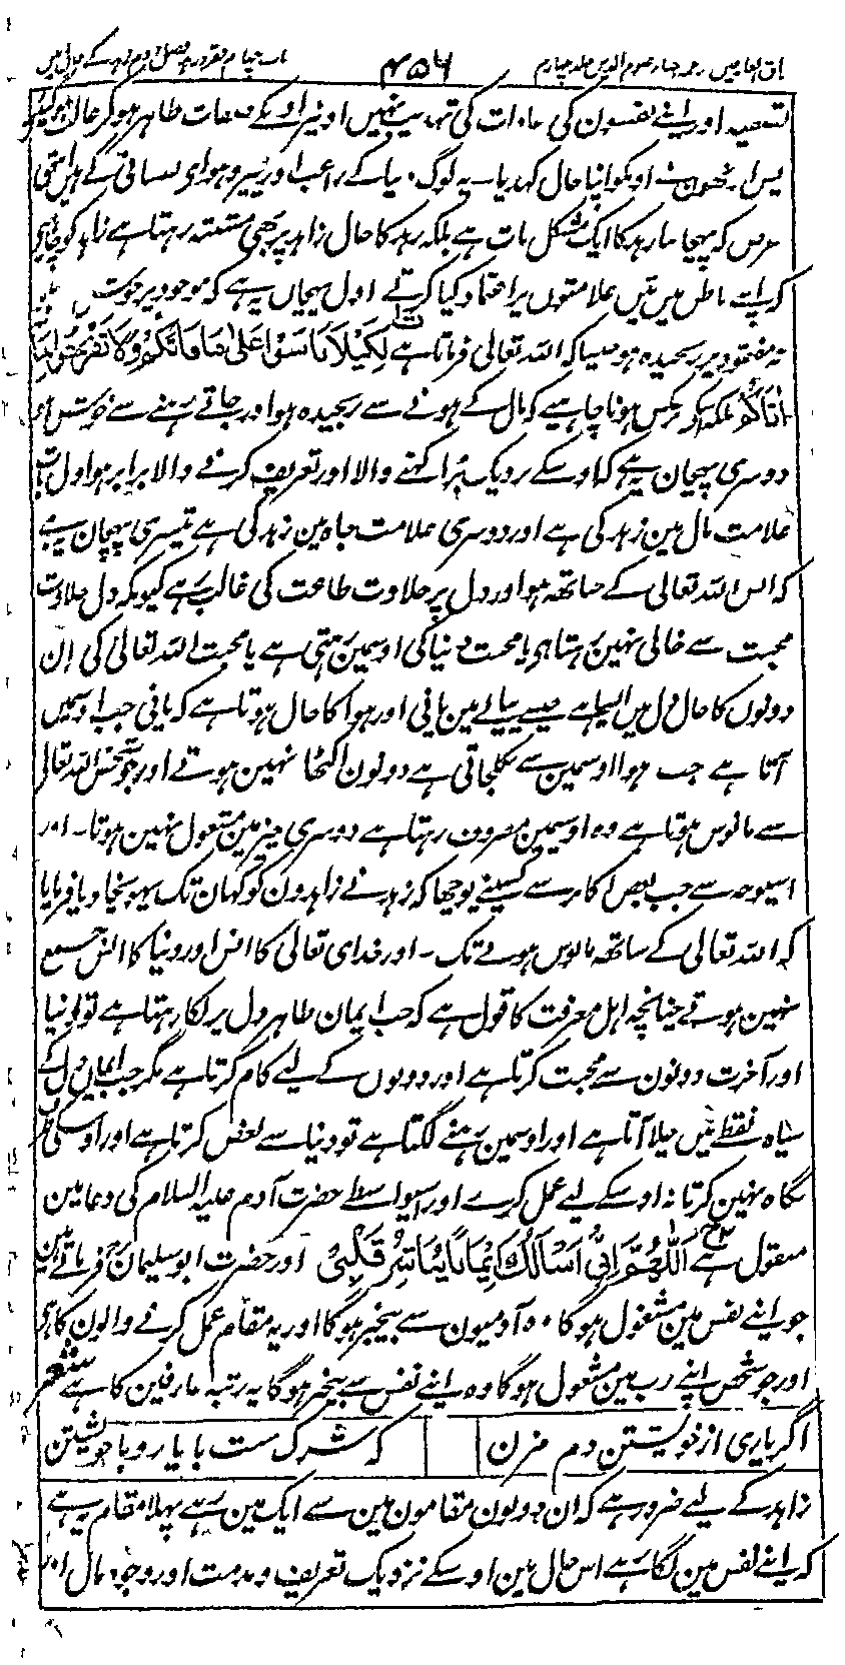 مذاق العارفین ترجمہ احیاء علوم الدین جلد چہارم ۴۵۶ باب چہارم فقر و زہد فصل دوم زہد کے بیان میں
تصفیہ اور اپنے نفسون کی عادات کی تہذیب نہیں اونپر اونکے صفات ظاہر ہو کر غالب ہو گئے
پس انھون نے اونکو اپنا حال کہدیا۔ یہ لوگ دنیا کے راغب اور پیرو ہوای نفسانی کے ہیں انتہی
غرض کہ پہچاننا زہد کا ایک مشکل بات ہے بلکہ زہد کا حال زاہد پر بھی مشتبہ رہتا ہے زاہد کو چاہیے
کہ اپنے باطن میں تین علامتوں پر اعتماد کیا کرے اول پہچان یہ ہے کہ موجود پر خوش
نہ مفقود پر رنجیدہ ہو جیسا کہ اللہ تعالی فرماتا ہے لِكَيْلَا تَأْسَوْا عَلٰى مَا فَاتَكُمْ وَلَا تَفْرَحُوا بِمَا
اٰتَاكُمْ بلکہ اسکے برعکس ہونا چاہیے کہ مال کے ہونے سے رنجیدہ ہو اور جاتے رہنے سے خوش ہو
دوسری پہچان یہ ہے کہ اوسکے نزدیک برا کہنے والا اور تعریف کرنے والا برابر ہو اول
علامت مال مین زہد کی ہے اور دوسری علامت جاہ مین زہد کی ہے تیسری پہچان یہ ہے
کہ انس اللہ تعالی کے ساتھ ہو اور دل پر حلاوت طاعت کی غالب رہے کیونکہ دل حلاوت
محبت سے خالی نہین رہتا ہی یا محبت دنیا کی اوسمین رہتی ہے یا محبت اللہ تعالی کی ان
دونوں کا حال دل میں ایسا ہے جیسے پیالے مین پانی اور ہوا کا حال ہوتا ہے کہ پانی جب اوسمیں
آتا ہے جب ہوا اوسمین سے نکلجاتی ہے دونون اکٹھا نہین ہوتے اور جو شخص اللہ تعالی
سے مانوس ہوتا ہے وہ اوسیمین مصروف رہتا ہے دوسری چیز مین مشغول نہین ہوتا۔ اور
اسیوجہ سے جب بعض اکابر سے کسینے پوچھا کہ زہد نے زاہدون کو کہان تک پہونچا دیا فرمایا
کہ اللہ تعالی کے ساتھ مانوس ہونے تک۔ اور خدای تعالی کا انس اور دنیا کا انس جمع
نہین ہوتے چنانچہ اہل معرفت کا قول ہے کہ جب ایمان ظاہر دل پر لگا رہتا ہے تو دنیا
اور آخرت دونون سے محبت کرتا ہے اور دونوں کے لیے کام کرتا ہے مگر جب ایمان دل کے
سیاہ نقطے میں چلا آتا ہے اور اوسمین رہنے لگتا ہے تو دنیا سے بغض کرتا ہے اور اوسکی طرف
نگاہ نہین کرتا نہ اوسکے لیے عمل کرے اور اسیواسطے حضرت آدم علیہ السلام کی دعا مین
منقول ہے اَللّٰهُمَّ اِنِّيْ اَسْاَلُكَ اِيْمَانًا يُبَاشِرُ قَلْبِيْ اور حضرت ابو سلیمان فرماتے ہین
جو اپنے نفس مین مشغول ہوگا وہ آدمیون سے بیخبر ہوگا اور یہ مقام عمل کرنے والون کا ہی
اور جو شخص اپنے رب مین مشغول ہوگا وہ اپنے نفس سے بیخبر ہوگا یہ رتبہ عارفین کا ہے شعر
اگر یاری از خویشتن دم مزن کہ شرک ست با یار و با خویشتن
زاہد کے لیے ضرور ہے کہ ان دونون مقامون مین سے ایک مین رہے پہلا مقام یہ ہے
کہ اپنے نفس مین لگا رہے اس حال مین اوسکے نزدیک تعریف و مذمت اور وجود مال